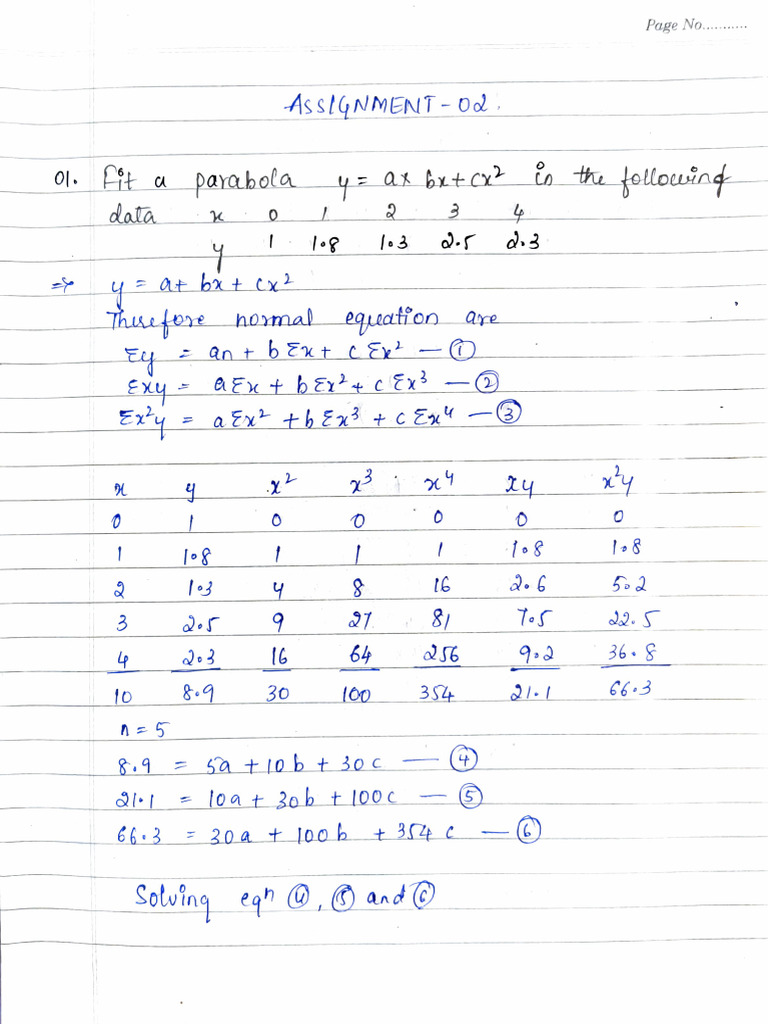 Page No...........
ASSIGNMENT-02.
01. Fit a parabola y = ax bx+cx² in the following
data x 0 1 2 3 4
y 1 1.8 1.3 2.5 2.3
⇒ y = a+ bx + cx²
Therefore normal equation are
Σy = an + bΣx + cΣx² — ①
Σxy = aΣx + bΣx² + cΣx³ — ②
Σx²y = aΣx² + bΣx³ + cΣx⁴ — ③
x y x² x³ x⁴ xy x²y
0 1 0 0 0 0 0
1 1.8 1 1 1 1.8 1.8
2 1.3 4 8 16 2.6 5.2
3 2.5 9 27 81 7.5 22.5
4 2.3 16 64 256 9.2 36.8
10 8.9 30 100 354 21.1 66.3
n = 5
8.9 = 5a + 10b + 30c — ④
21.1 = 10a + 30b + 100c — ⑤
66.3 = 30a + 100b + 354c — ⑥
Solving eqⁿ ④, ⑤ and ⑥